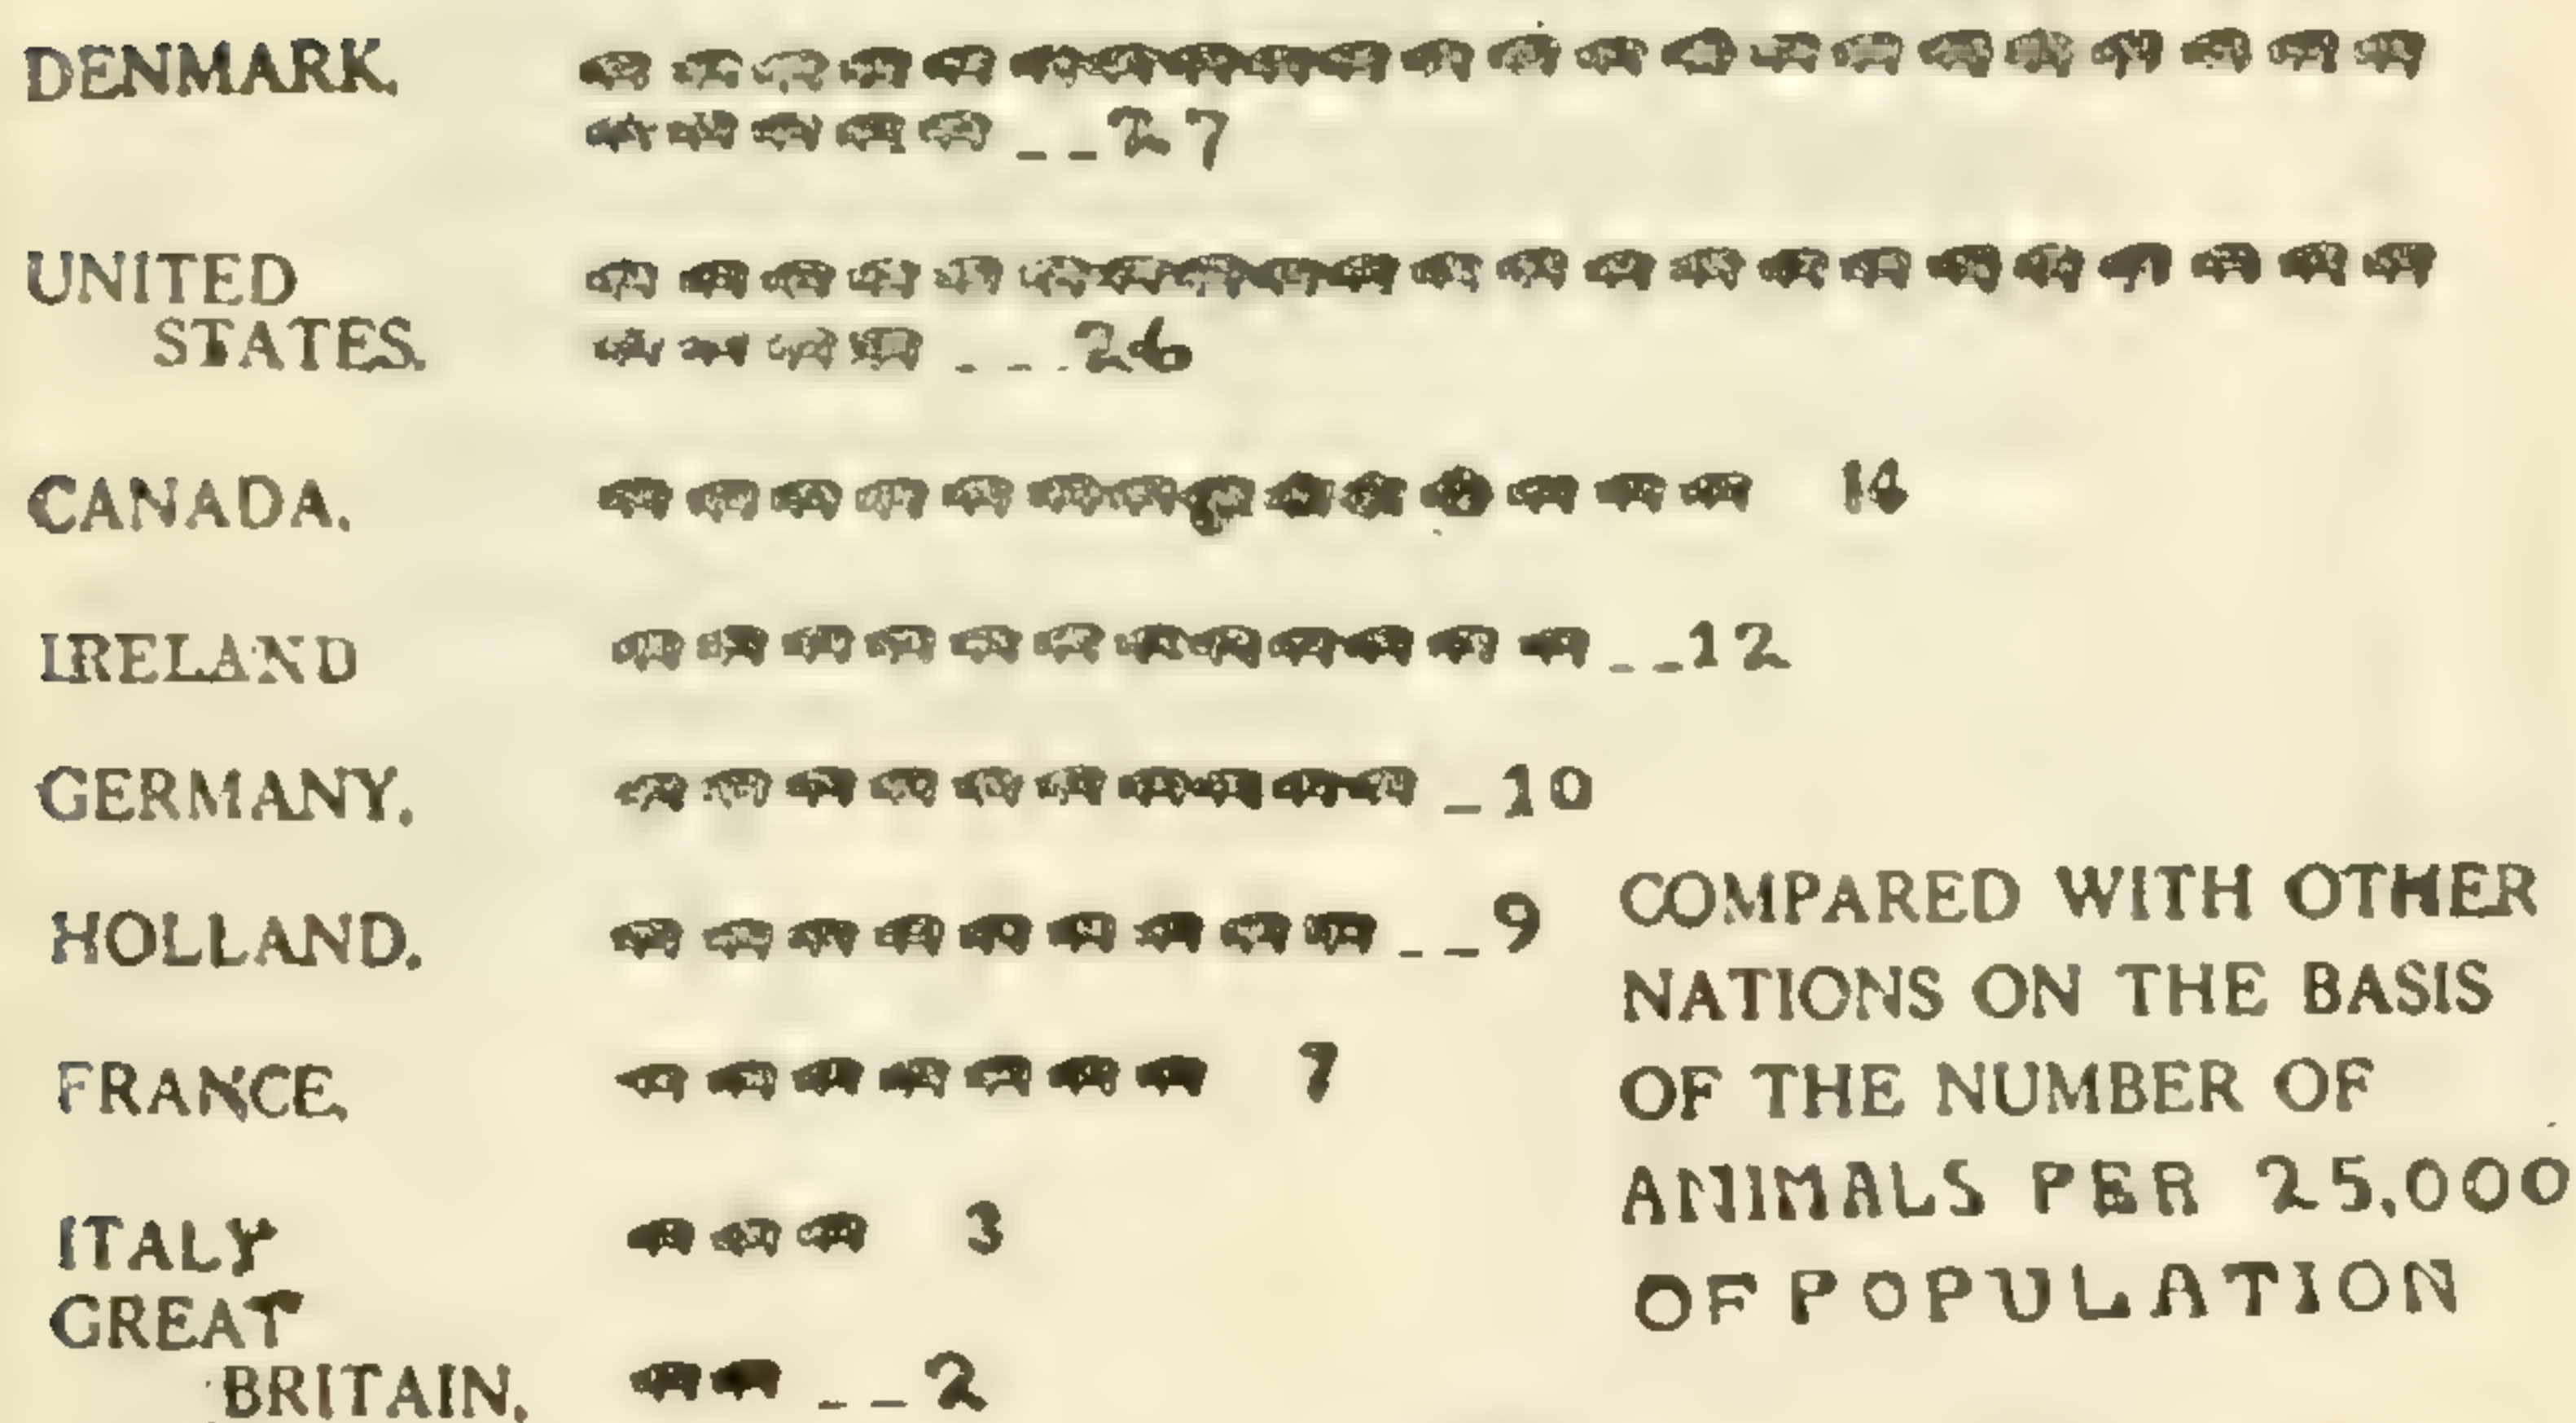 DENMARK.
_ _ 27
UNITED
STATES.
_ _ . 26
CANADA. 14
IRELAND _ _ 12
GERMANY. _ 10
HOLLAND. _ _ 9
FRANCE. 7
ITALY 3
GREAT
BRITAIN. _ _ 2
COMPARED WITH OTHER
NATIONS ON THE BASIS
OF THE NUMBER OF
ANIMALS PER 25,000
OF POPULATION